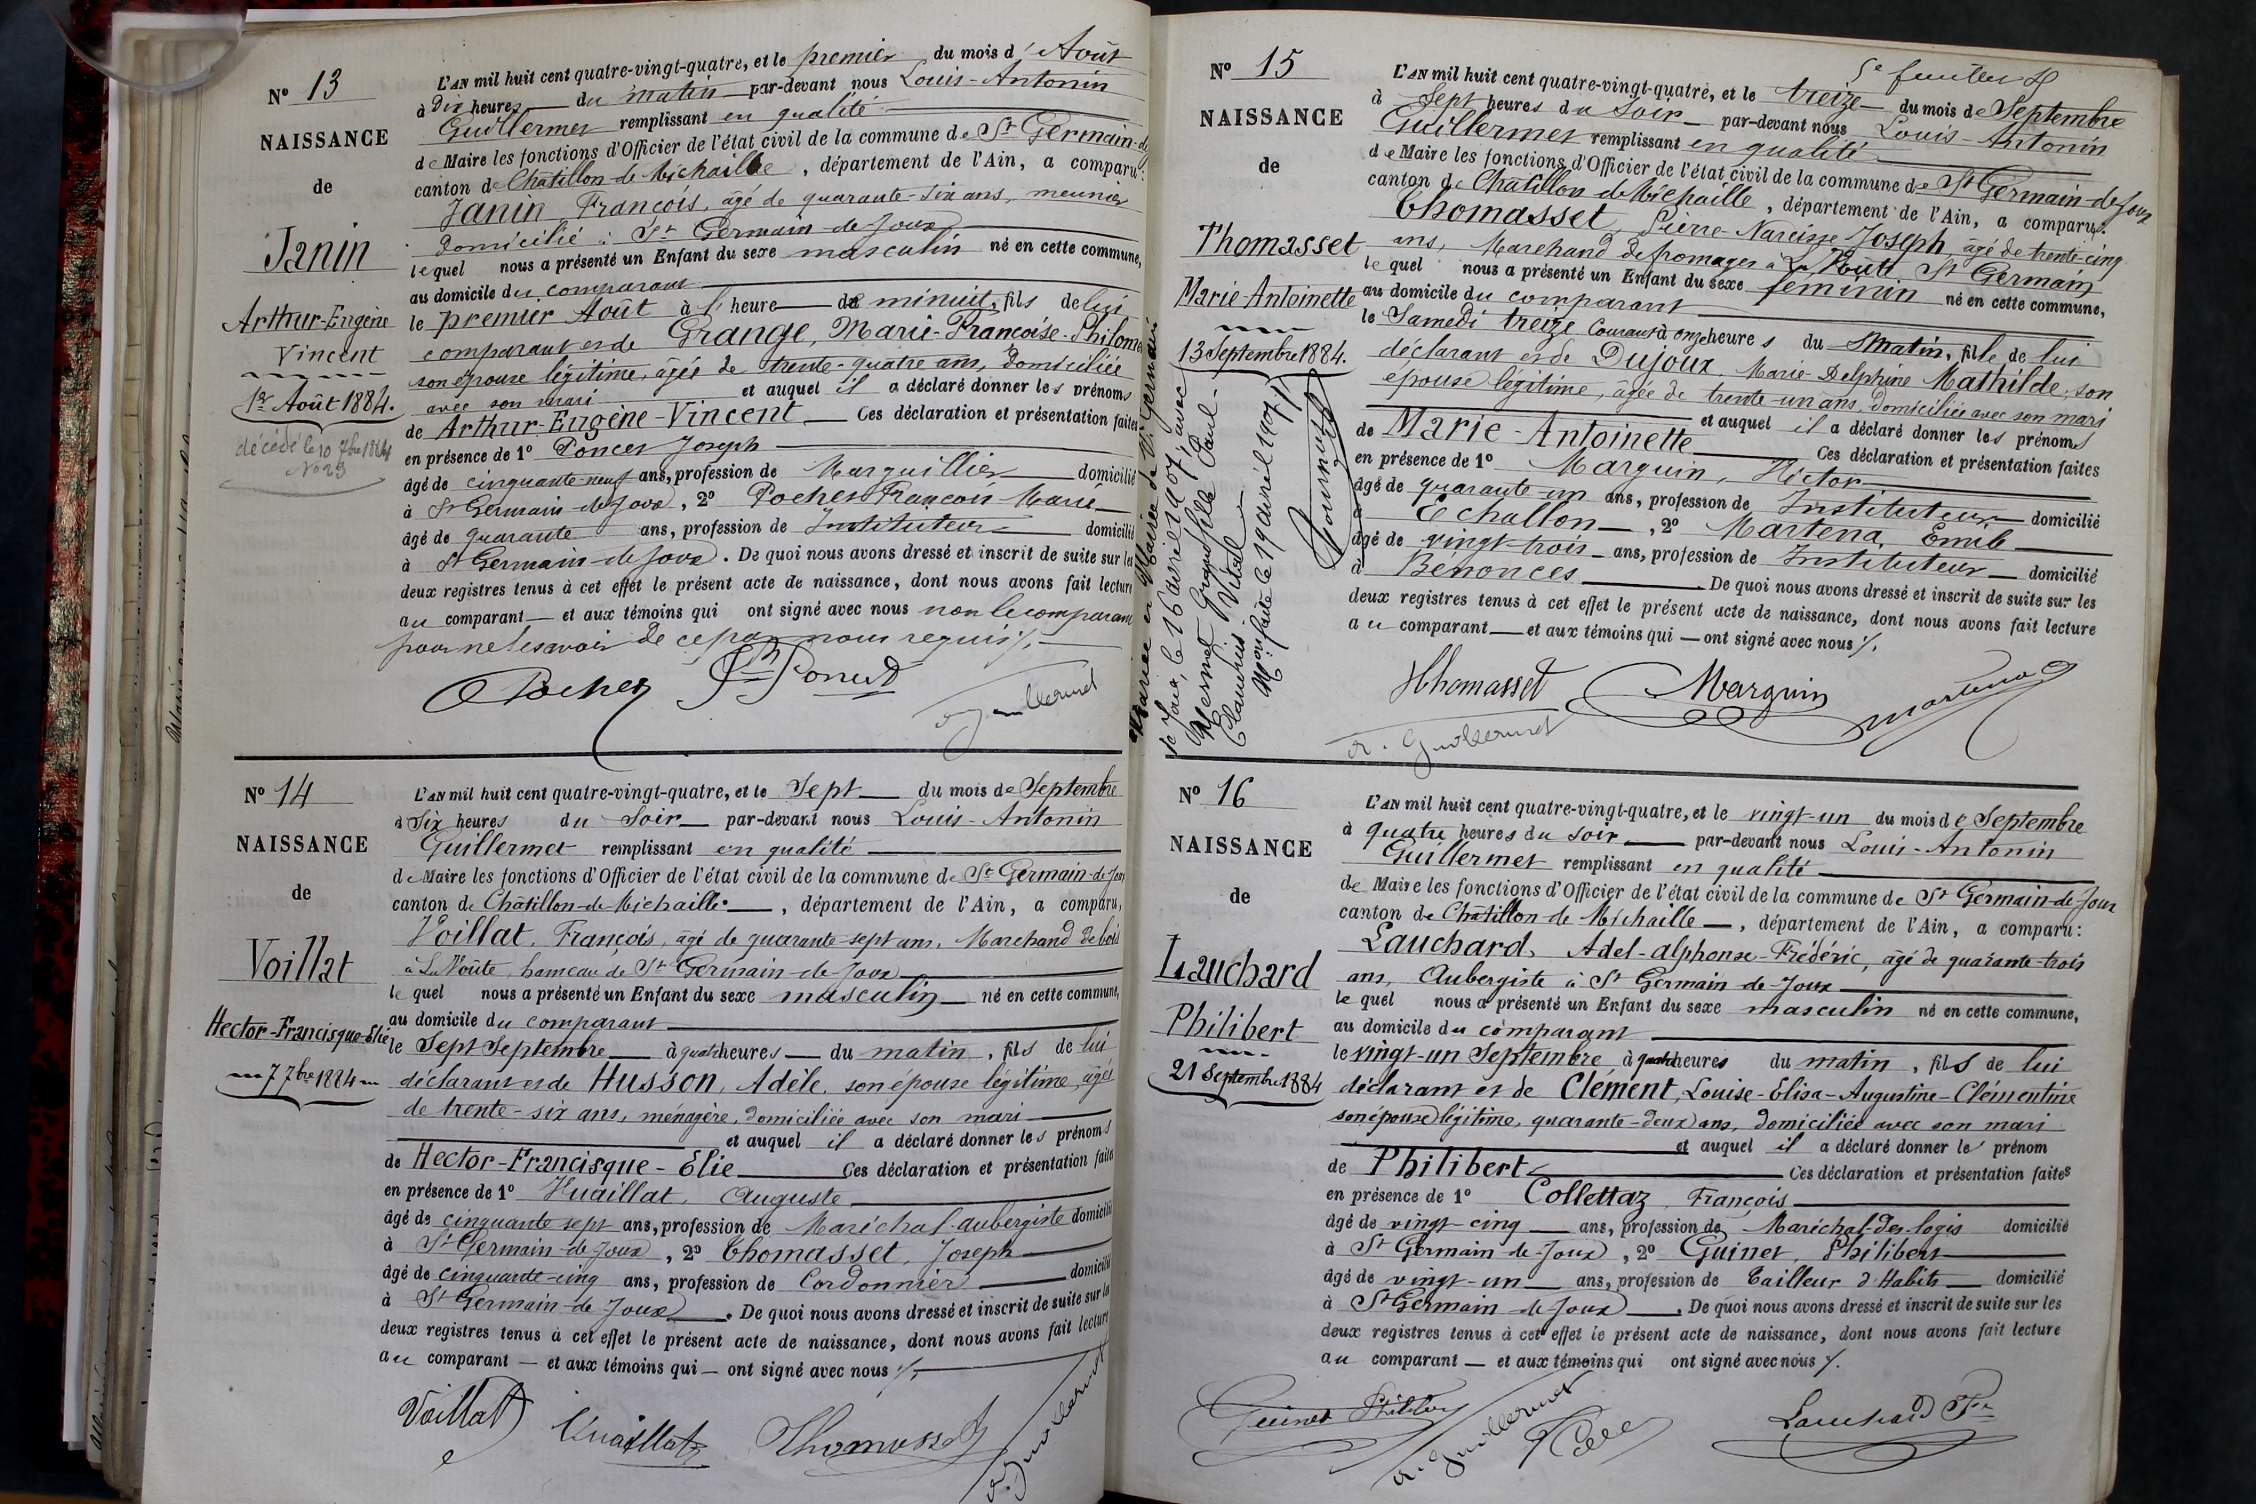 N° 13
NAISSANCE
de
Janin
Arthur-Eugène
Vincent
1er Août 1884.
décédé le 10 7bre 1884
N° 23
L'AN mil huit cent quatre-vingt-quatre, et le premier du mois d'Août
à Dix heures du matin par-devant nous Louis-Antonin
Guillermet remplissant en qualité
de Maire les fonctions d'Officier de l'état civil de la commune de St Germain-de
canton de Châtillon-de-Michaille, département de l'Ain, a comparu:
Janin François, âgé de quarante-six ans, meunier
domicilié à St Germain-de-Joux
lequel nous a présenté un Enfant du sexe masculin né en cette commune,
au domicile du comparant
le premier Août à 1 heure de minuit, fils de lui
comparant et de Grange, Marie-Françoise-Philomè
son épouse légitime, âgée de trente-quatre ans, domiciliée
avec son mari et auquel il a déclaré donner les prénoms
de Arthur-Eugène-Vincent Ces déclaration et présentation faites
en présence de 1° Poncet Joseph
âgé de cinquante-neuf ans, profession de Marguillier domicilié
à St Germain-de-Joux, 2° Pochet François-Marie
âgé de quarante ans, profession de Instituteur domicilié
à St Germain-de-Joux. De quoi nous avons dressé et inscrit de suite sur les
deux registres tenus à cet effet le présent acte de naissance, dont nous avons fait lecture
au comparant et aux témoins qui ont signé avec nous non le comparant
pour ne le savoir de ce par nous requis ./.
Pochet Poncet
a. Guillermet
N° 14
NAISSANCE
de
Voillat
Hector-Francisque-Elie
7 7bre 1884
L'AN mil huit cent quatre-vingt-quatre, et le Sept du mois de Septembre
à Six heures du Soir par-devant nous Louis-Antonin
Guillermet remplissant en qualité
de Maire les fonctions d'Officier de l'état civil de la commune de St Germain-de-Joux
canton de Châtillon-de-Michaille, département de l'Ain, a comparu,
Voillat, François, âgé de quarante-sept ans, Marchand de bois
à La Voûte, hameau de St Germain-de-Joux
lequel nous a présenté un Enfant du sexe masculin né en cette commune,
au domicile du comparant
le Sept Septembre à quatre heures du matin, fils de lui
déclarant et de Husson, Adèle, son épouse légitime, âgée
de trente-six ans, ménagère, domiciliée avec son mari
et auquel il a déclaré donner les prénoms
de Hector-Francisque-Elie Ces déclaration et présentation faites
en présence de 1° Vuaillat, Auguste
âgé de cinquante sept ans, profession de Maréchal-aubergiste domicilié
à St Germain-de-Joux, 2° Thomasset, Joseph
âgé de cinquante-cinq ans, profession de Cordonnier domicilié
à St Germain-de-Joux. De quoi nous avons dressé et inscrit de suite sur les
deux registres tenus à cet effet le présent acte de naissance, dont nous avons fait lecture
au comparant et aux témoins qui ont signé avec nous ./.
Voillat Vuaillat Thomasset a. Guillermet
5e feuillet
N° 15
NAISSANCE
de
Thomasset
Marie-Antoinette
13 Septembre 1884.
Mariée en Mairie de St Germain
de Joux, le 16 avril 1907, avec
Claudius Vital
Mon faite le 19 avril 1907 ./.
L'AN mil huit cent quatre-vingt-quatre, et le treize du mois de Septembre
à Sept heures du Soir par-devant nous Louis-Antonin
Guillermet remplissant en qualité
de Maire les fonctions d'Officier de l'état civil de la commune de St Germain-de-Joux
canton de Châtillon de Michaille, département de l'Ain, a comparu:
Thomasset, Pierre-Narcisse Joseph, âgé de trente-cinq
ans, Marchand de fromages à La Voûte St Germain
lequel nous a présenté un Enfant du sexe féminin né en cette commune,
au domicile du comparant
le Samedi treize Courant à onze heures du Matin, fille de lui
déclarant et de Dujoux Marie-Delphine Mathilde, son
épouse légitime, âgée de trente-un ans, domiciliée avec son mari
et auquel il a déclaré donner les prénoms
de Marie-Antoinette Ces déclaration et présentation faites
en présence de 1° Marguin, Victor
âgé de quarante-un ans, profession de Instituteur domicilié
à Echallon, 2° Martena, Emile
âgé de vingt-trois ans, profession de Instituteur domicilié
à Benonces De quoi nous avons dressé et inscrit de suite sur les
deux registres tenus à cet effet le présent acte de naissance, dont nous avons fait lecture
au comparant et aux témoins qui ont signé avec nous ./.
Thomasset Marguin Martena
a. Guillermet
N° 16
NAISSANCE
de
Lauchard
Philibert
21 Septembre 1884
L'AN mil huit cent quatre-vingt-quatre, et le vingt-un du mois de Septembre
à quatre heures du soir par-devant nous Louis-Antonin
Guillermet remplissant en qualité
de Maire les fonctions d'Officier de l'état civil de la commune de St Germain-de-Joux
canton de Châtillon-de-Michaille, département de l'Ain, a comparu:
Lauchard, Adel-alphonse-Frédéric, âgé de quarante-trois
ans, Aubergiste à St Germain-de-Joux
lequel nous a présenté un Enfant du sexe masculin né en cette commune,
au domicile du comparant
le vingt-un Septembre à quatre heures du matin, fils de lui
déclarant et de Clément, Louise-Elisa-Augustine-Clémentine
son épouse légitime, quarante-deux ans, domiciliée avec son mari
et auquel il a déclaré donner le prénom
de Philibert Ces déclaration et présentation faites
en présence de 1° Collettaz, François
âgé de vingt-cinq ans, profession de Maréchal-des-logis domicilié
à St Germain-de-Joux, 2° Guinet, Philibert
âgé de vingt-un ans, profession de Tailleur d'Habits domicilié
à St Germain-de-Joux. De quoi nous avons dressé et inscrit de suite sur les
deux registres tenus à cet effet le présent acte de naissance, dont nous avons fait lecture
au comparant et aux témoins qui ont signé avec nous ./.
Guinet Philibert a. Guillermet Lauchard